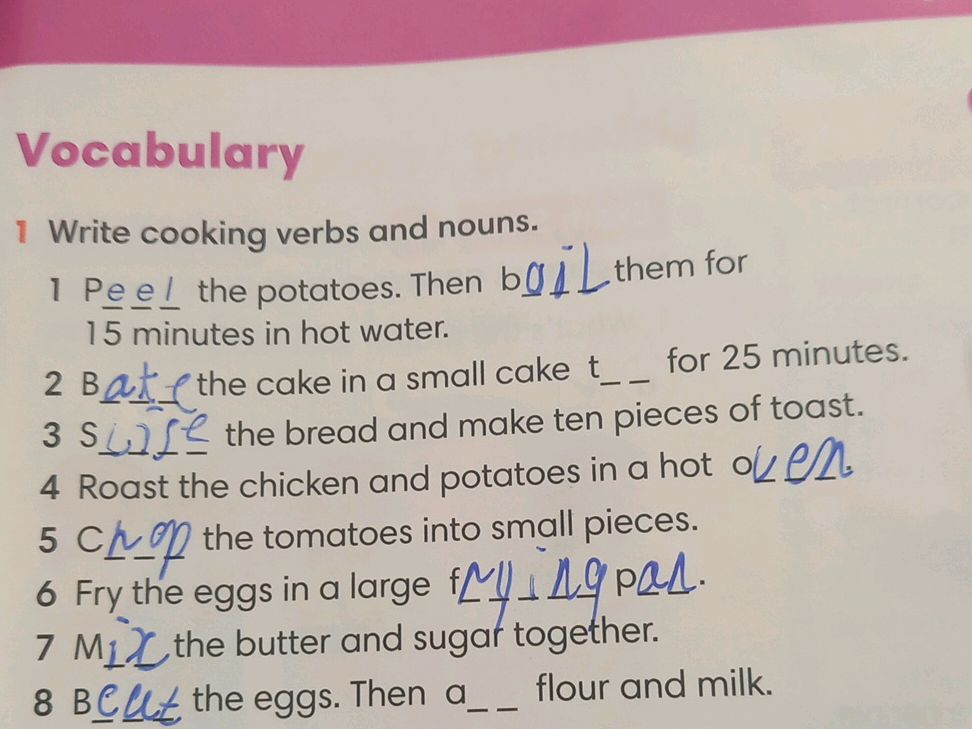 Vocabulary
1 Write cooking verbs and nouns.
1 Peel the potatoes. Then boil them for
15 minutes in hot water.
2 Bate the cake in a small cake t_ _ for 25 minutes.
3 Swise the bread and make ten pieces of toast.
4 Roast the chicken and potatoes in a hot oven.
5 Chop the tomatoes into small pieces.
6 Fry the eggs in a large frying pan.
7 Mix the butter and sugar together.
8 Beat the eggs. Then a_ _ flour and milk.